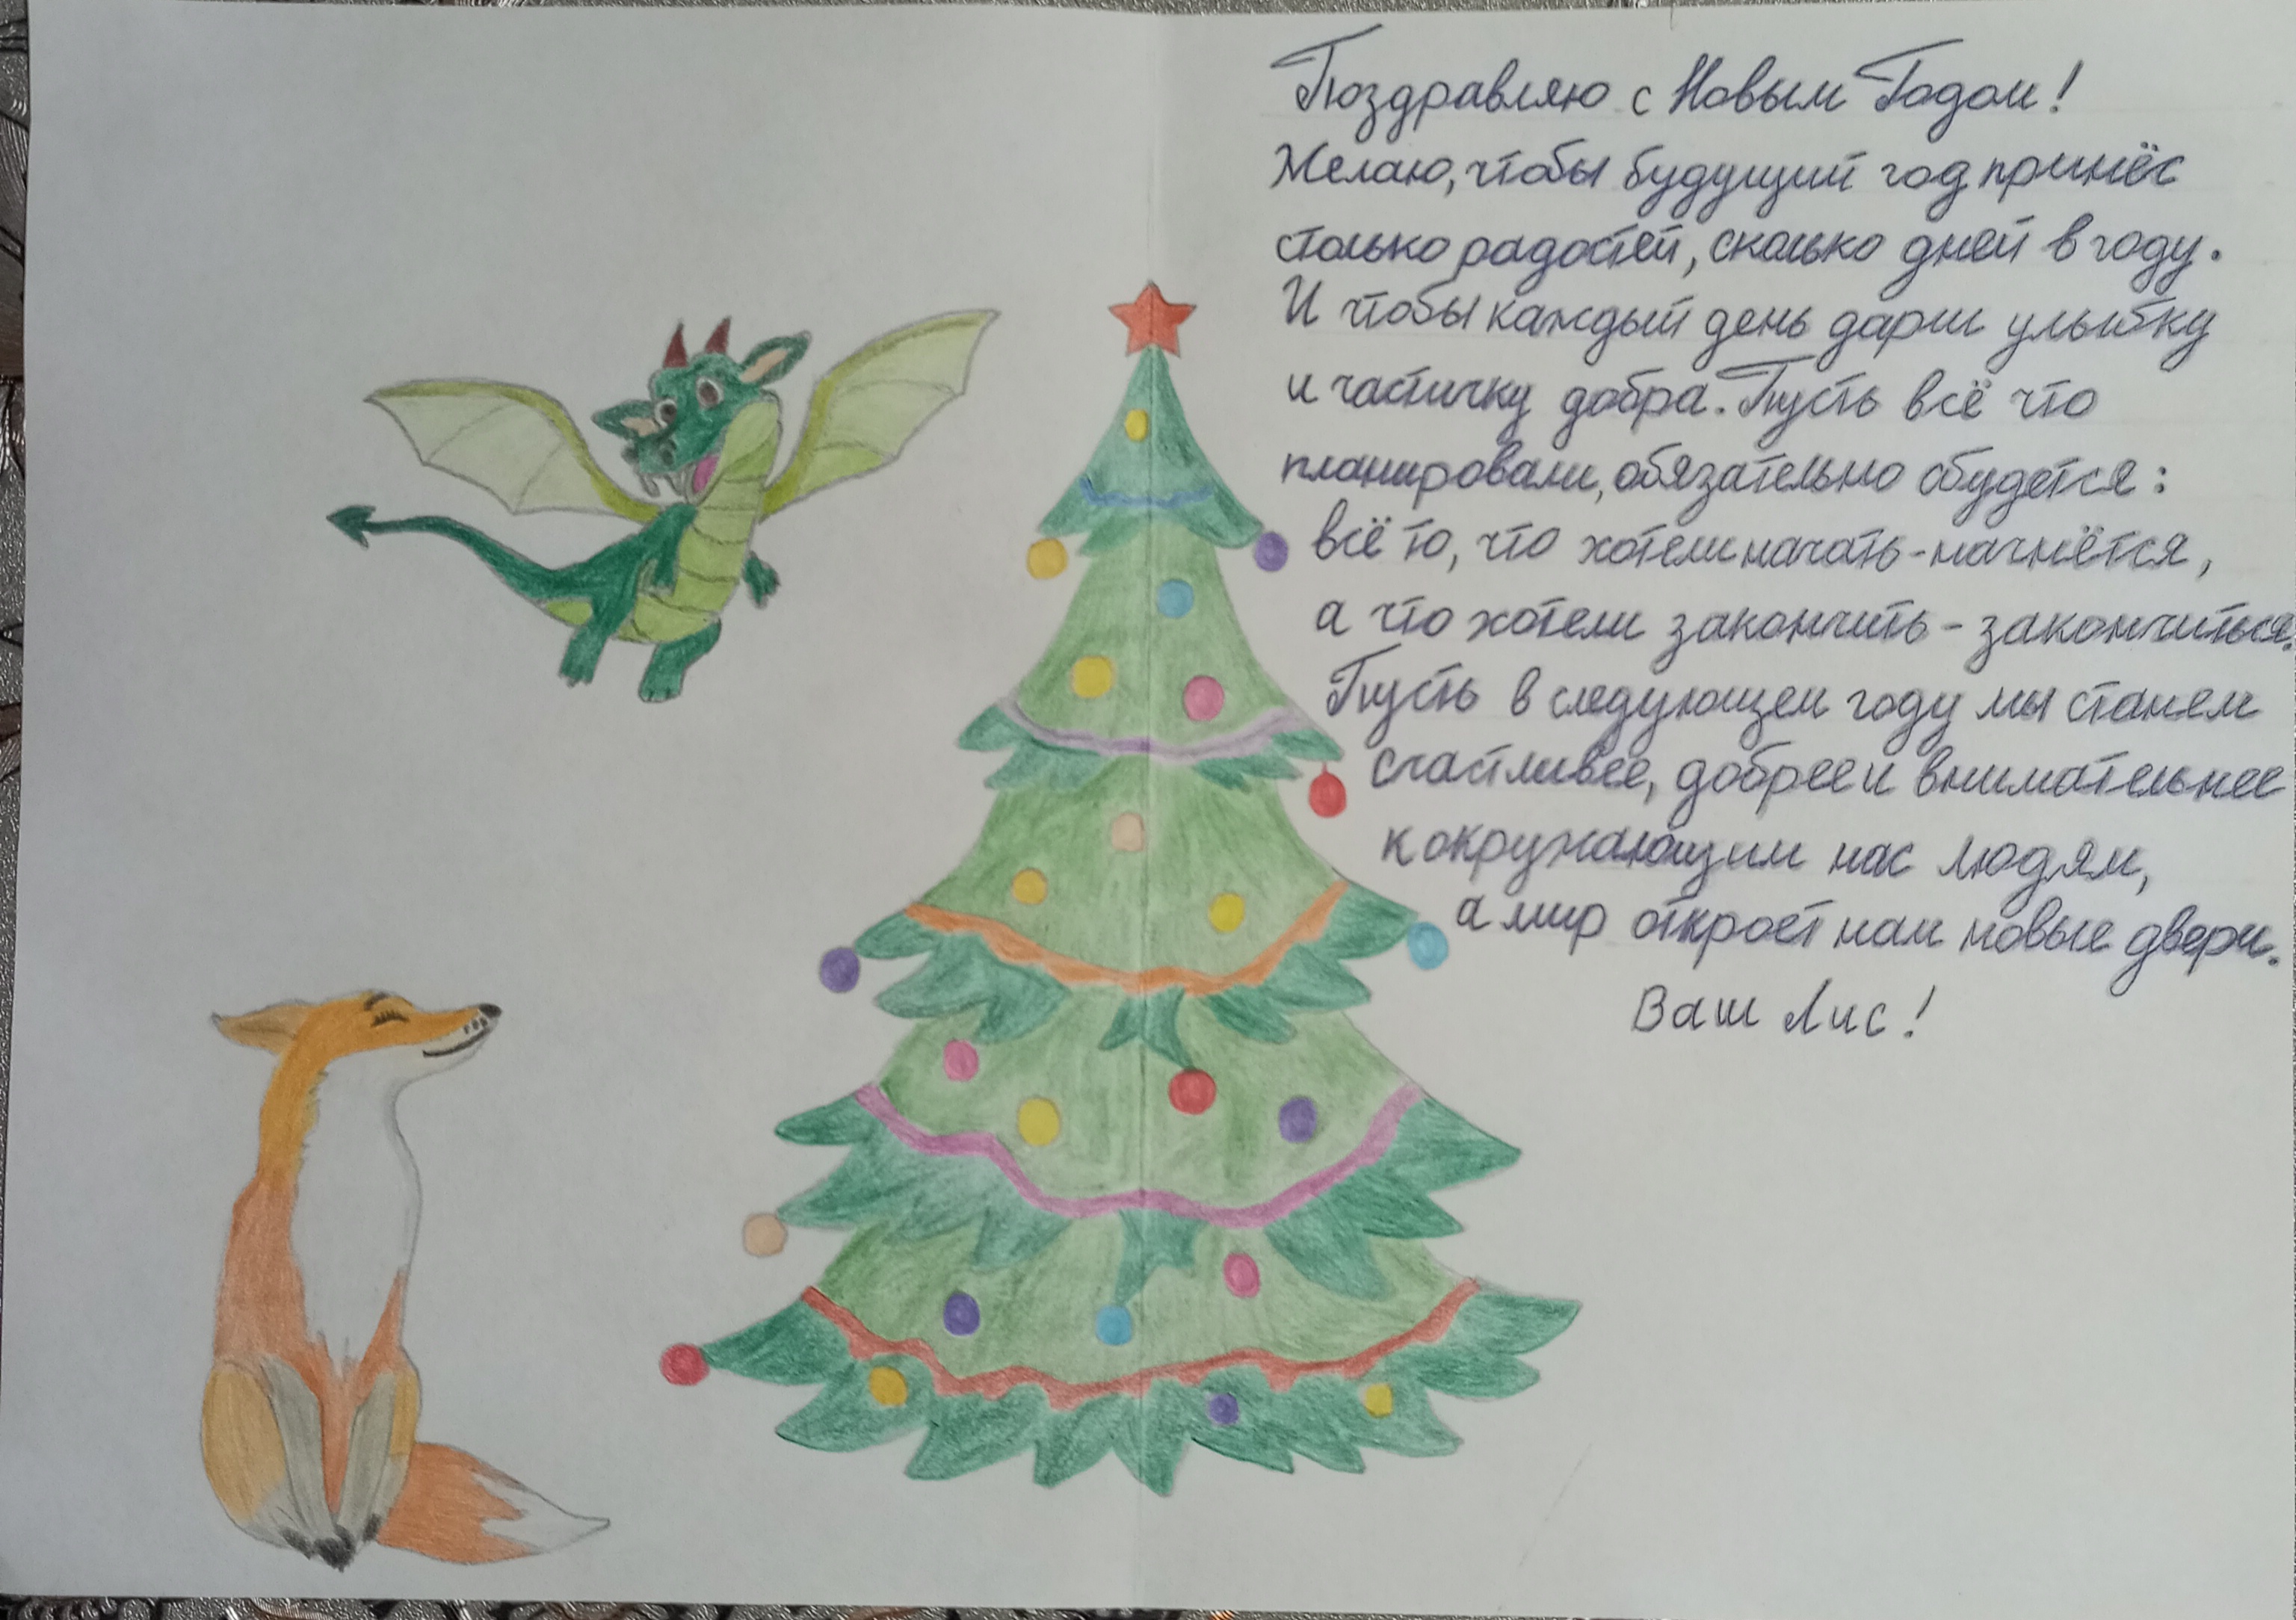 Поздравляю с Новым Годом!
Желаю, чтобы будущий год принёс
столько радостей, сколько дней в году.
И чтобы каждый день дарил улыбку
и частичку добра. Пусть всё что
планировали, обязательно сбудется:
всё то, что хотели начать - начнётся,
а что хотели закончить - закончиться.
Пусть в следующем году мы станем
счастливее, добрее и внимательнее
к окружающим нас людям,
а мир откроет нам новые двери.
Ваш Лис!